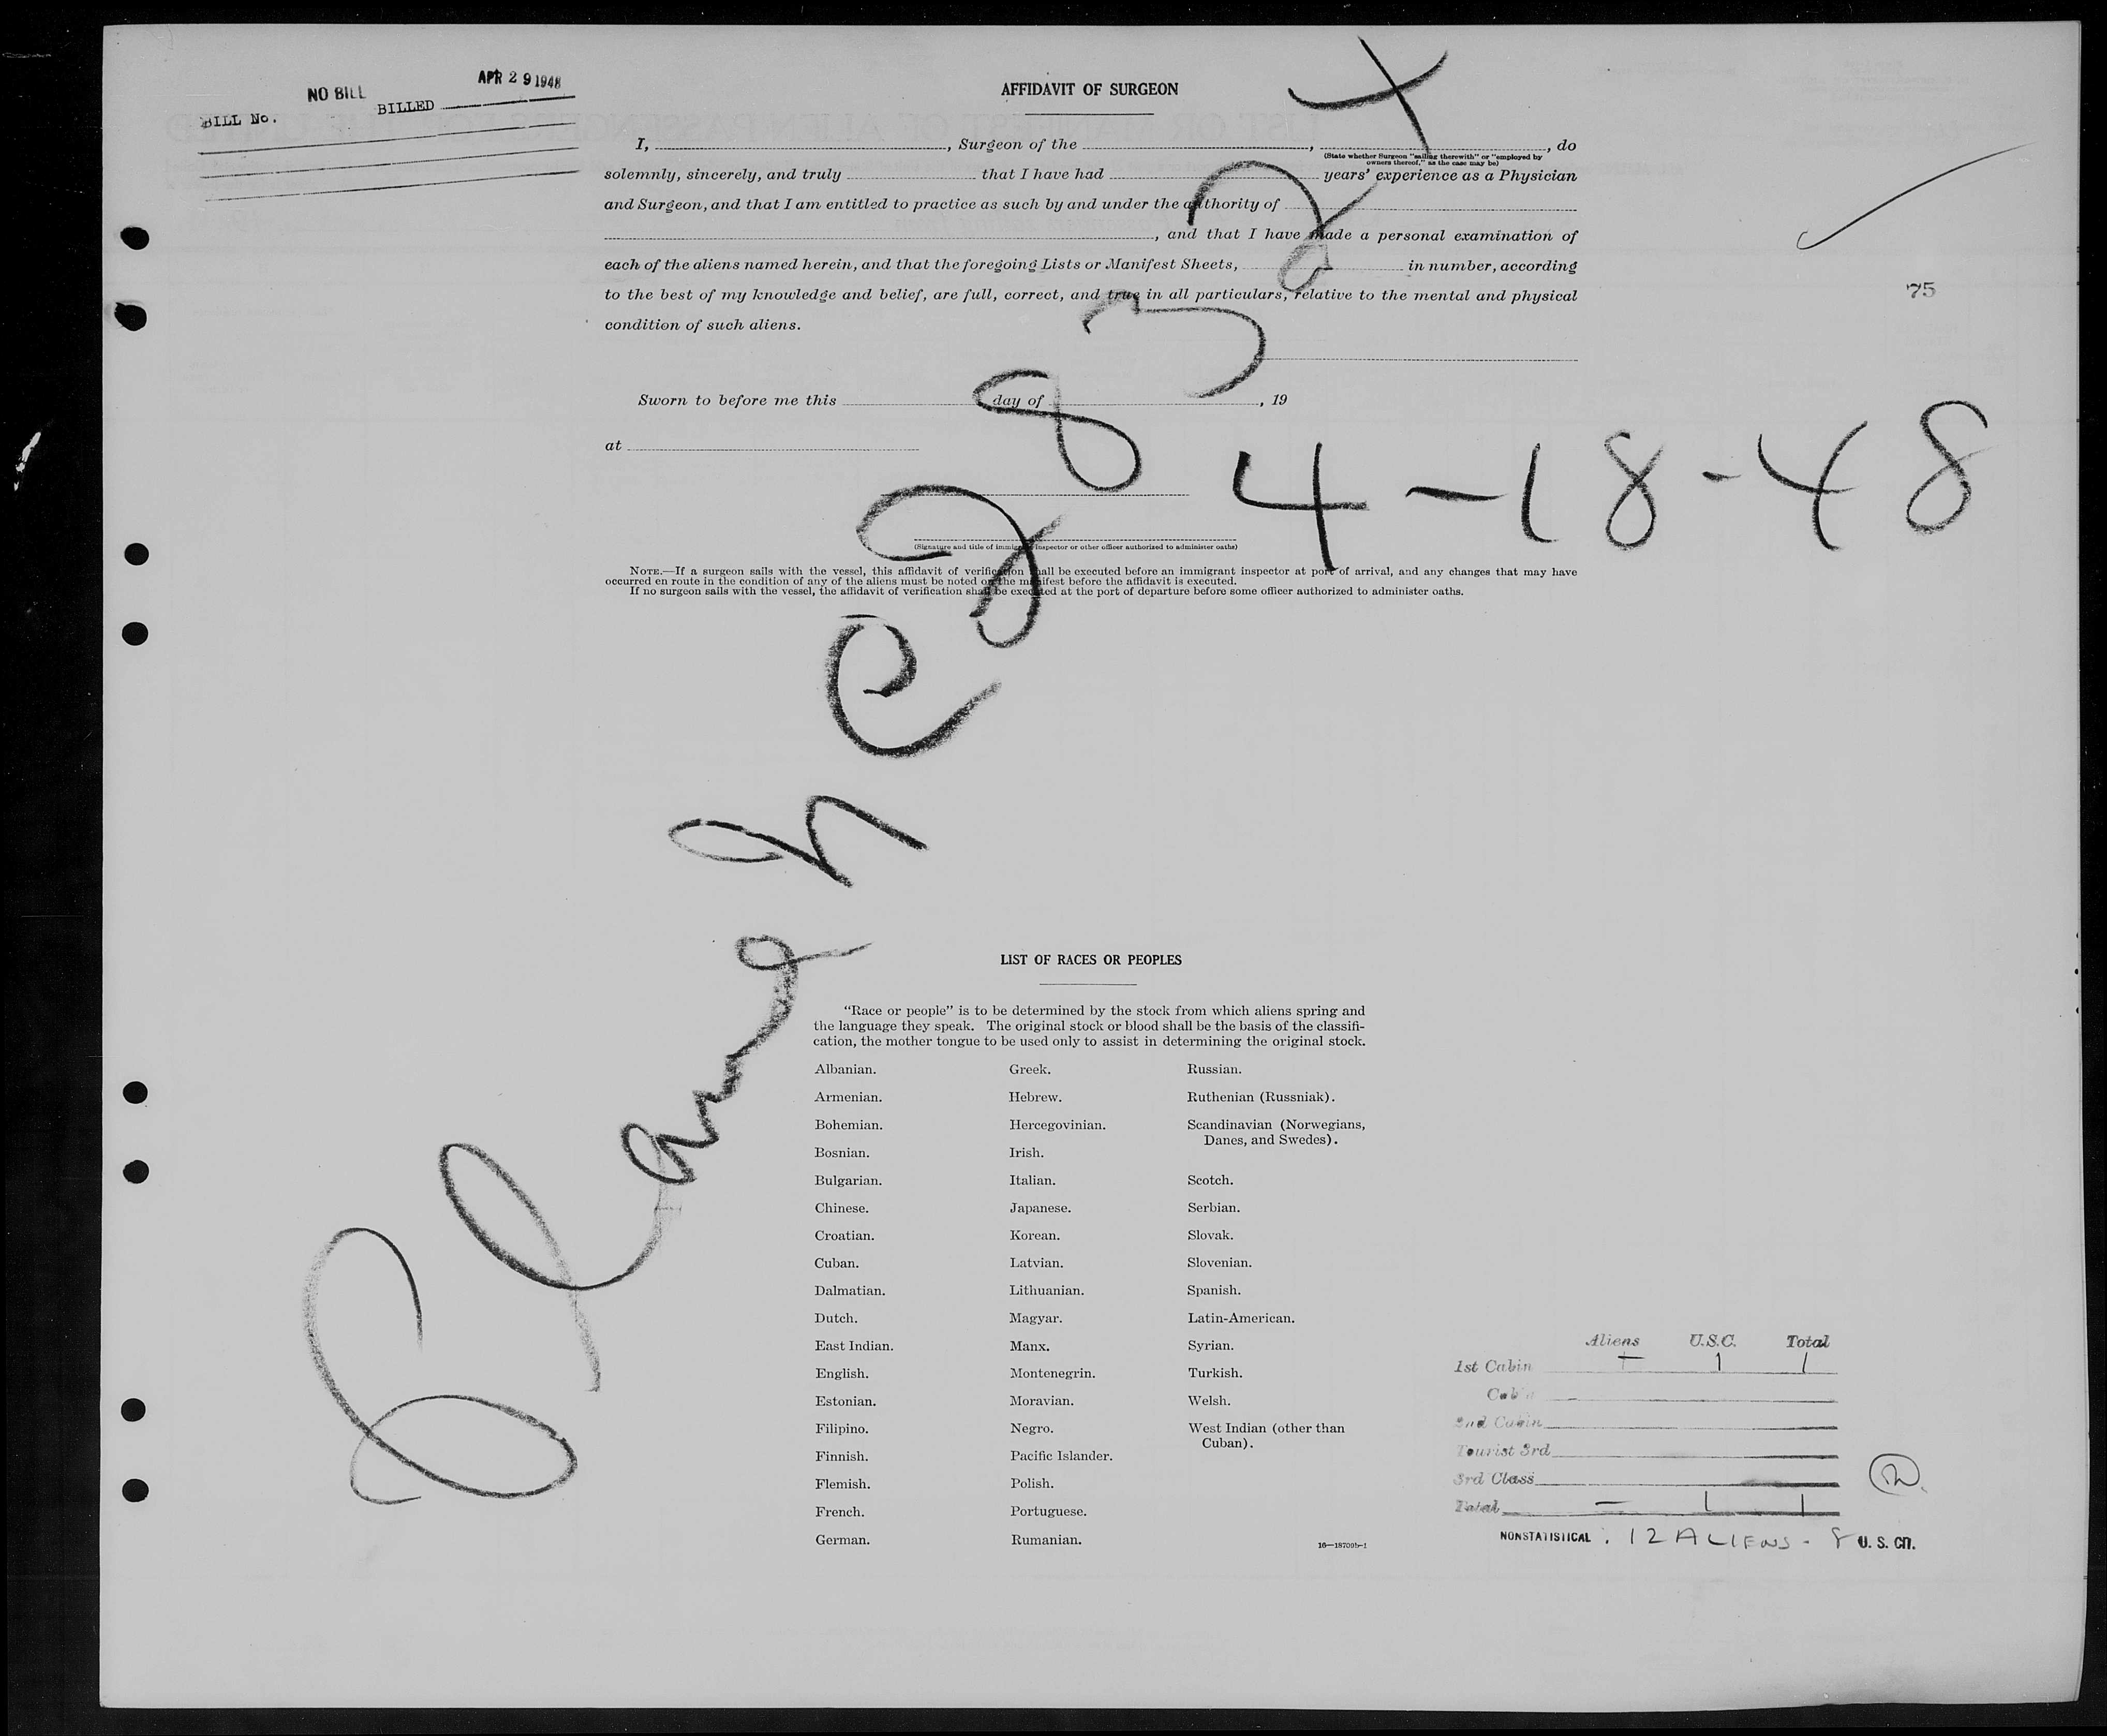 NO BILL APR 29 1948
BILL No. BILLED
AFFIDAVIT OF SURGEON
I, , Surgeon of the , , do
(State whether Surgeon "sailing therewith" or "employed by
owners thereof," as the case may be)
solemnly, sincerely, and truly that I have had years' experience as a Physician
and Surgeon, and that I am entitled to practice as such by and under the authority of
, and that I have made a personal examination of
each of the aliens named herein, and that the foregoing Lists or Manifest Sheets, in number, according
to the best of my knowledge and belief, are full, correct, and true in all particulars, relative to the mental and physical
condition of such aliens.
75
Sworn to before me this day of , 19
at
4-18-48
(Signature and title of immigrant inspector or other officer authorized to administer oaths)
NOTE.—If a surgeon sails with the vessel, this affidavit of verification shall be executed before an immigrant inspector at port of arrival, and any changes that may have
occurred en route in the condition of any of the aliens must be noted on the manifest before the affidavit is executed.
If no surgeon sails with the vessel, the affidavit of verification shall be executed at the port of departure before some officer authorized to administer oaths.
LIST OF RACES OR PEOPLES
"Race or people" is to be determined by the stock from which aliens spring and
the language they speak. The original stock or blood shall be the basis of the classifi-
cation, the mother tongue to be used only to assist in determining the original stock.
Albanian. Greek. Russian.
Armenian. Hebrew. Ruthenian (Russniak).
Bohemian. Hercegovinian. Scandinavian (Norwegians,
Danes, and Swedes).
Bosnian. Irish.
Bulgarian. Italian. Scotch.
Chinese. Japanese. Serbian.
Croatian. Korean. Slovak.
Cuban. Latvian. Slovenian.
Dalmatian. Lithuanian. Spanish.
Dutch. Magyar. Latin-American.
East Indian. Manx. Syrian.
English. Montenegrin. Turkish.
Estonian. Moravian. Welsh.
Filipino. Negro. West Indian (other than
Cuban).
Finnish. Pacific Islander.
Flemish. Polish.
French. Portuguese.
German. Rumanian.
16—18709b-1
Aliens U.S.C. Total
1st Cabin 1 1
Cabin
2nd Cabin
Tourist 3rd
3rd Class
Total — 1 1
NONSTATISTICAL : 12 ALIENS - 8 U. S. CIT.